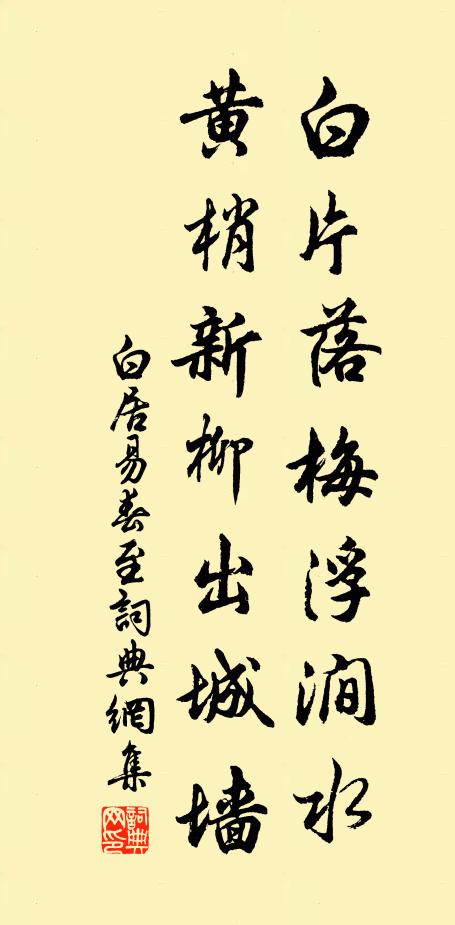 白片落梅浮澗水
黄梢新柳出城墻
白居易春至詞典網集
詞典
网印